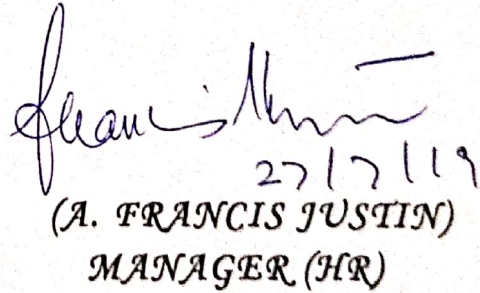 Francis Justin
27/7/19
(A. FRANCIS JUSTIN)
MANAGER (HR)